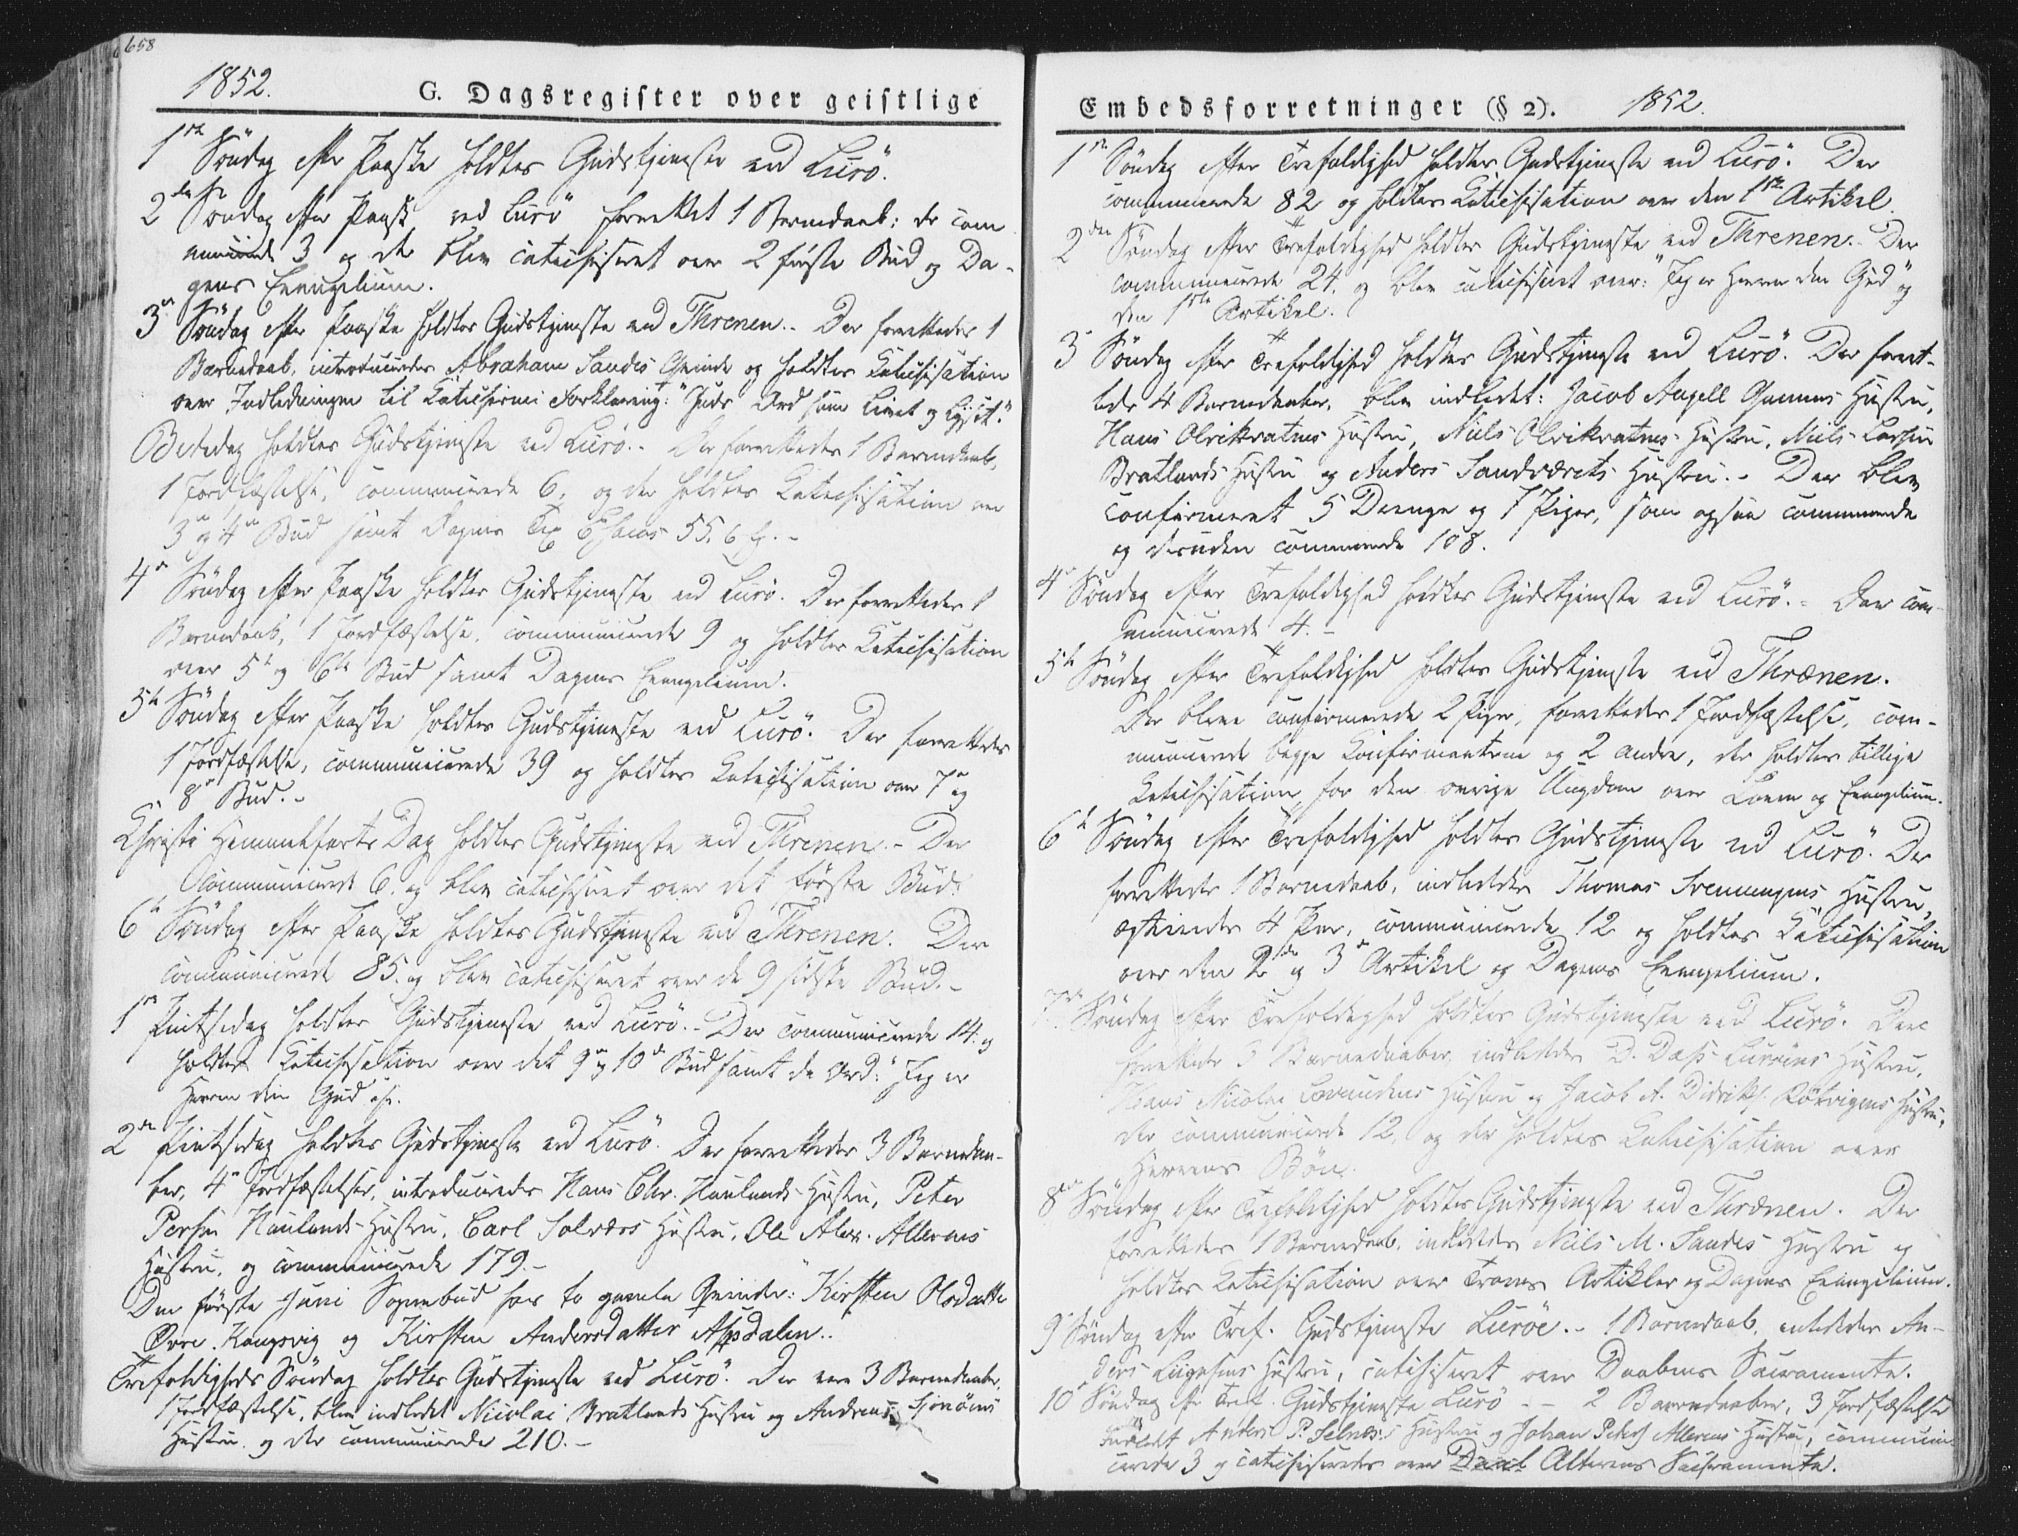 658
1852.
G. Dagsregister over geistlige
1ste Søndag efter Paaske holdtes Gudstjeneste ved Lurø.
2den Søndag efter Paask ved Lurø forrettet 1 Barnedaab; de com
municerede 3 og der blev catechiseret over 2 første Bud og Da-
gens Evangelium.
3die Søndag efter Paaske holdtes Gudstjeneste ved Threnen.- Der forrettedes 1
Barnedaab, introduceredes Abraham Sandøs Qvinde og holdtes Katechisation
over Indledningen til Katechismi Forklaring: "Guds Ord som Livet og Lyset."
Bededag holdtes Gudstjeneste ved Lurø.- Der forrettedes 1 Barnedaab,
1 Jordfæstelse, communicerede 6, og der holdtes Katechisation over
3 og 4 Bud samt Dagens Tex Esaias 55, 6 fg.-
4de Søndag efter Paaske holdtes Gudstjeneste ved Lurø. Der forrettedes 1
Barnedaab, 1 Jordfæstelse, communicerede 9 og holdtes Katechisation
over 5te og 6te Bud samt Dagens Evangelium.
5te Søndag efter Paaske holdtes Gudstjeneste ved Lurø. Der forrettedes
1 Jordfæstelse, communicerede 39 og holdtes Katechisation over 7de og
8de Bud.-
Christi Himmelfarts Dag holdtes Gudstjeneste ved Threnen.- Der
communicerede 6. og blev catechiseret over det første Bud.
6te Søndag efter Paaske holdtes Gudstjeneste ved Threnen. Der
communicerede 85. og blev catechiseret over de 9 sidste Bud.-
1ste Pintsedag holdtes Gudstjeneste ved Lurø.- Der communicerede 14. og
holdtes Katechisation over det 9de og 10de Bud samt de Ord: "Jeg er
Herren din Gud"
2den Pintsedag holdtes Gudstjeneste ved Lurø. Der forrettedes 3 Barnedaa-
ber, 4 Jordfæstelser, introduceredes Hans Chr. Haulands Hustru, Peter
Persen Haulands Hustru, Carl Solværs Hustru, Ole Alex. Alternes
Hustru, og communicerede 179.-
Den første Juni Sognebud hos to gamle Qvinder: Kirsten Olsdatter
Øvre. Kongsvig og Kirsten Andersdatter Aspdalen..
Trefoldigheds Søndag holdtes Gudstjeneste ved Lurø. Der vare 3 Barnedaaber,
1 Jordfæstelse, blev indledet Nicolai Bratlands Hustru og Andreas Sjonøens
Hustru og der communicerede 210.-
Embedsforretninger (§ 2).
1852.
1ste Søndag efter Trefoldighed holdtes Gudstjeneste ved Lurø. Der
communicerede 82 og holdtes Katechisation over den 1ste Artikel
2den Søndag efter Trefoldighed holdtes Gudstjeneste ved Threnen.- Der
communicerede 24, og blev catechiseret over: "Jeg er Herren din Gud" og
den 1ste Artikel.
3 Søndag efter Trefoldighed holdtes Gudstjeneste ved Lurø. Der forret-
tedes 4 Barnedaaber, blev indledet: Jacob Angell Hustru,
Hans Olvikvatnes Hustru, Niels Olvikvatnes Hustru, Niels Larsen
Bratlands Hustru og Anders Sandværets Hustru.- Der blev
confirmeret 5 Drenge og 7 Piger, som ogsaa communicerede
og desuden communicerede 108.
4de Søndag efter Trefoldighed holdtes Gudstjeneste ved Lurø.- Der com-
municerede 4.-
5te Søndag efter Trefoldighed holdtes Gudstjeneste ved Thrænen.
Der bleve confirmerede 2 Piger, forrettedes 1 Jordfæstelse, com-
municerede begge Konfirmanterne og 2 andre, der holdtes tillige
Katechisation for den øvrige Ungdom over Loven og Evangelium.
6te Søndag efter Trefoldighed holdtes Gudstjeneste ved Lurø. Der
forrettedes 1 Barnedaab, indlededes Thomas Svenningens Hustru,
ægteviedes 4 Par, communicerede 12 og holdtes Katechisation
over den 2den og 3die Artikel og Dagens Evangelium.
7de Søndag efter Trefoldighed holdtes Gudstjeneste ved Lurø. Der
forrettedes 3 Barnedaaber, indlededes D. Dass Lurøens Hustru,
Hans Nicolai Lovundens Hustru og Jacob A. Didriks. Rørvigens Hustru,
der communicerede 12, og der holdtes Katechisation over
Herrens Bøn.
8de Søndag efter Trefoldighed holdtes Gudstjeneste ved Thrænen. Der
forrettedes 1 Barnedaab, indlededes Niels M. Sandøs Hustru og
holdtes Katechisation over Troens Artikler og Dagens Evangelium.
9 Søndag efter Tref. Gudstjeneste Lurøe.- 1 Barnedaab, indlededes An-
ders Hustru, catechiseret over Daabens Sacramente.
10 Søndag efter Tref. Gudstjeneste Lurø - - 2 Barnedaaber, 3 Jordfæstelser
Indledet Anders P. Selnæs's Hustru og Johan Peters Alternes Hustru, communi
cerede 3 og catechiseredes over Daab Alterens Sacramente.